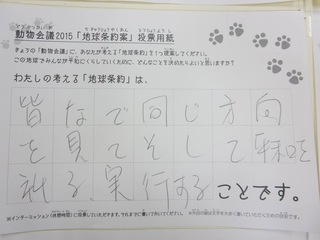 どうぶつかいぎ ちきゅうじょうやくあん とうひょうようし
動物会議2015「地球条約案」投票用紙
きょうの「動物会議」に、あなたが考える「地球条約」を1つ提案してください。
この地球でみんなが平和にくらしていくために、どんなことを決めたらよいと思いますか?
わたしの考える「地球条約」は、
皆なで同じ方向
を見てそして
る、実行する ことです。
※インターミッション(休憩時間)に投票していただきます。それまでに書いておいてください。